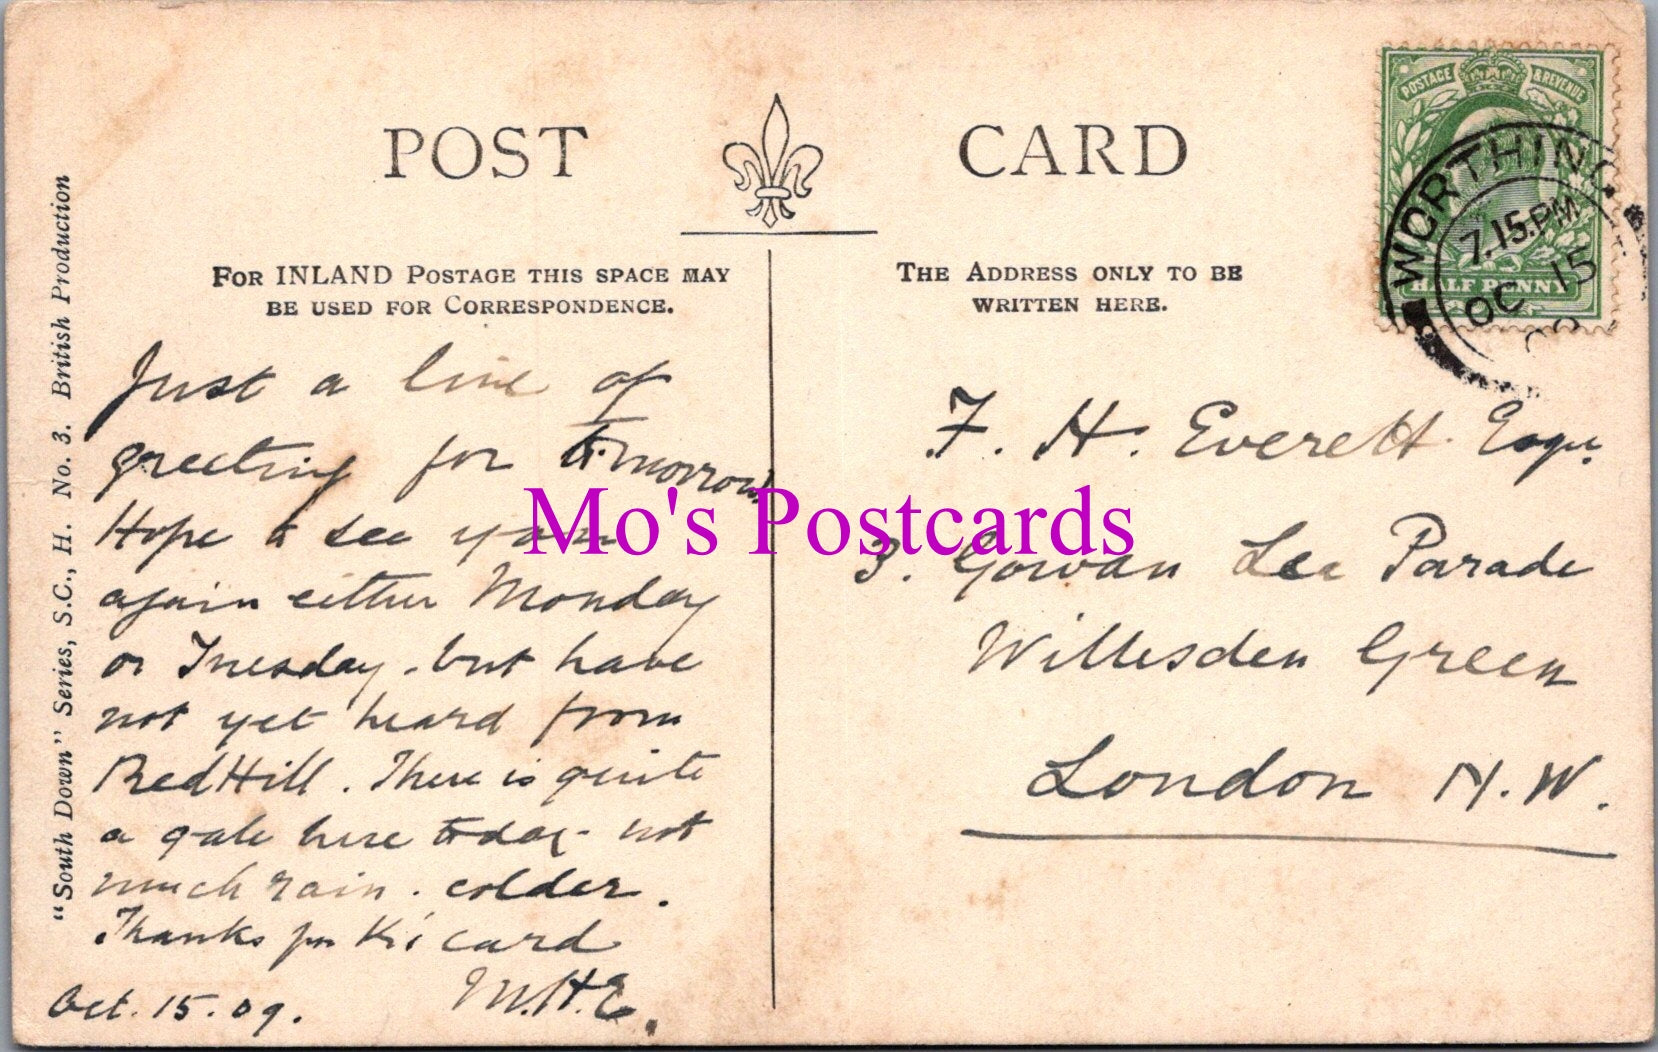 POST CARD
FOR INLAND POSTAGE THIS SPACE MAY
BE USED FOR CORRESPONDENCE.
THE ADDRESS ONLY TO BE
WRITTEN HERE.
"South Down" Series, S.C., H. No. 3. British Production
Just a line of
greeting for tomorrow
Hope to see you
again either Monday
or Tuesday. but have
not yet heard from
Red Hill. There is quite
a gale here today - not
much rain. colder.
Thanks for card
M.H.E.
Oct. 15. 09.
F. H. Everett Esqu.
3. Gowan Lea Parade
Willesden Green
London N.W.
POSTAGE & REVENUE
HALF PENNY
WORTHING
7.15.PM
OC 15
Mo's Postcards